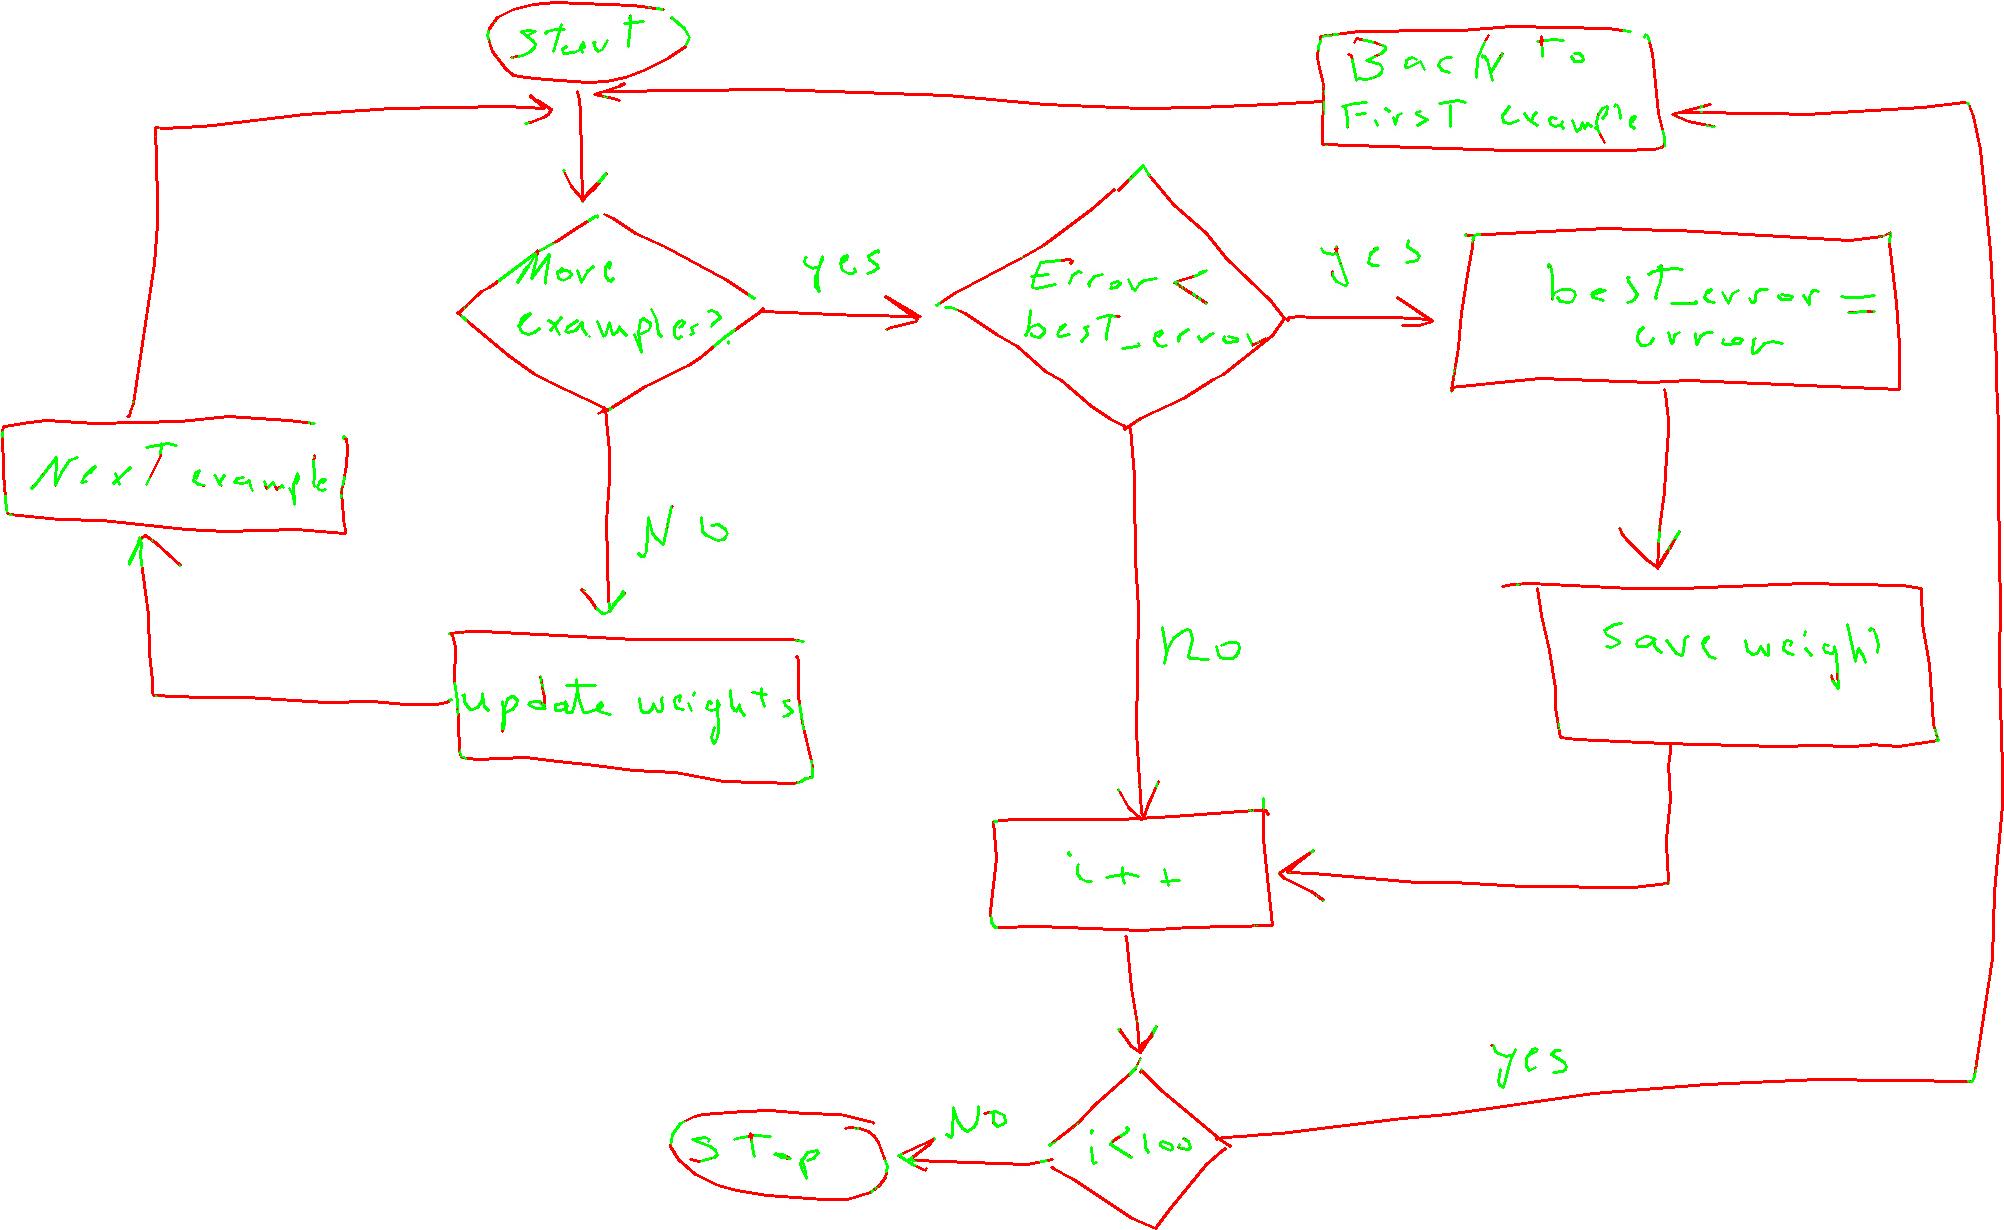 Start
Back To
First example
More
examples?
yes
Error <
best_error
yes
best_error =
error
Next example
No
update weights
No
save weight
i++
yes
No
Stop
i<100